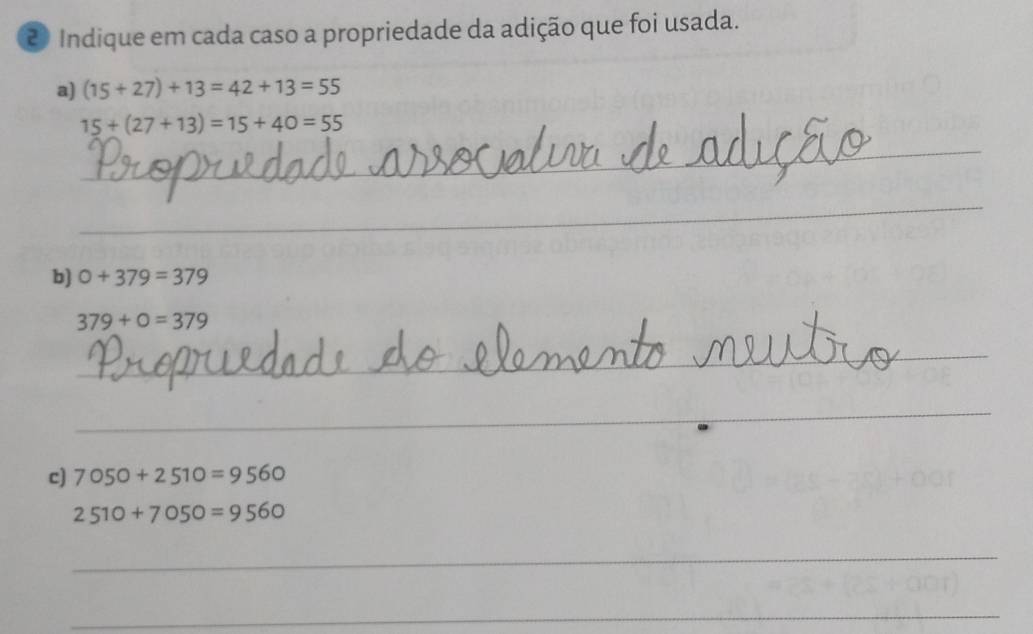 2 Indique em cada caso a propriedade da adição que foi usada.
a) (15 + 27) + 13 = 42 + 13 = 55
15 + (27 + 13) = 15 + 40 = 55
Propriedade associativa de adição
b) 0 + 379 = 379
379 + 0 = 379
Propriedade do elemento neutro
c) 7 050 + 2 510 = 9 560
2 510 + 7 050 = 9 560